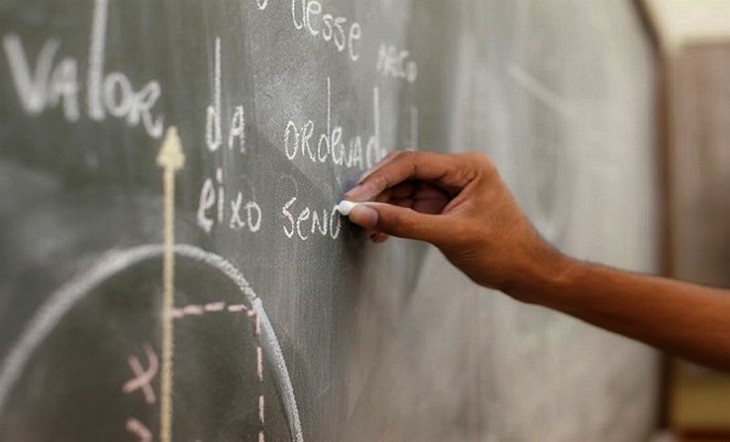 desse ARCO
VAlOR dA ORdENAd
eixo SENO
x